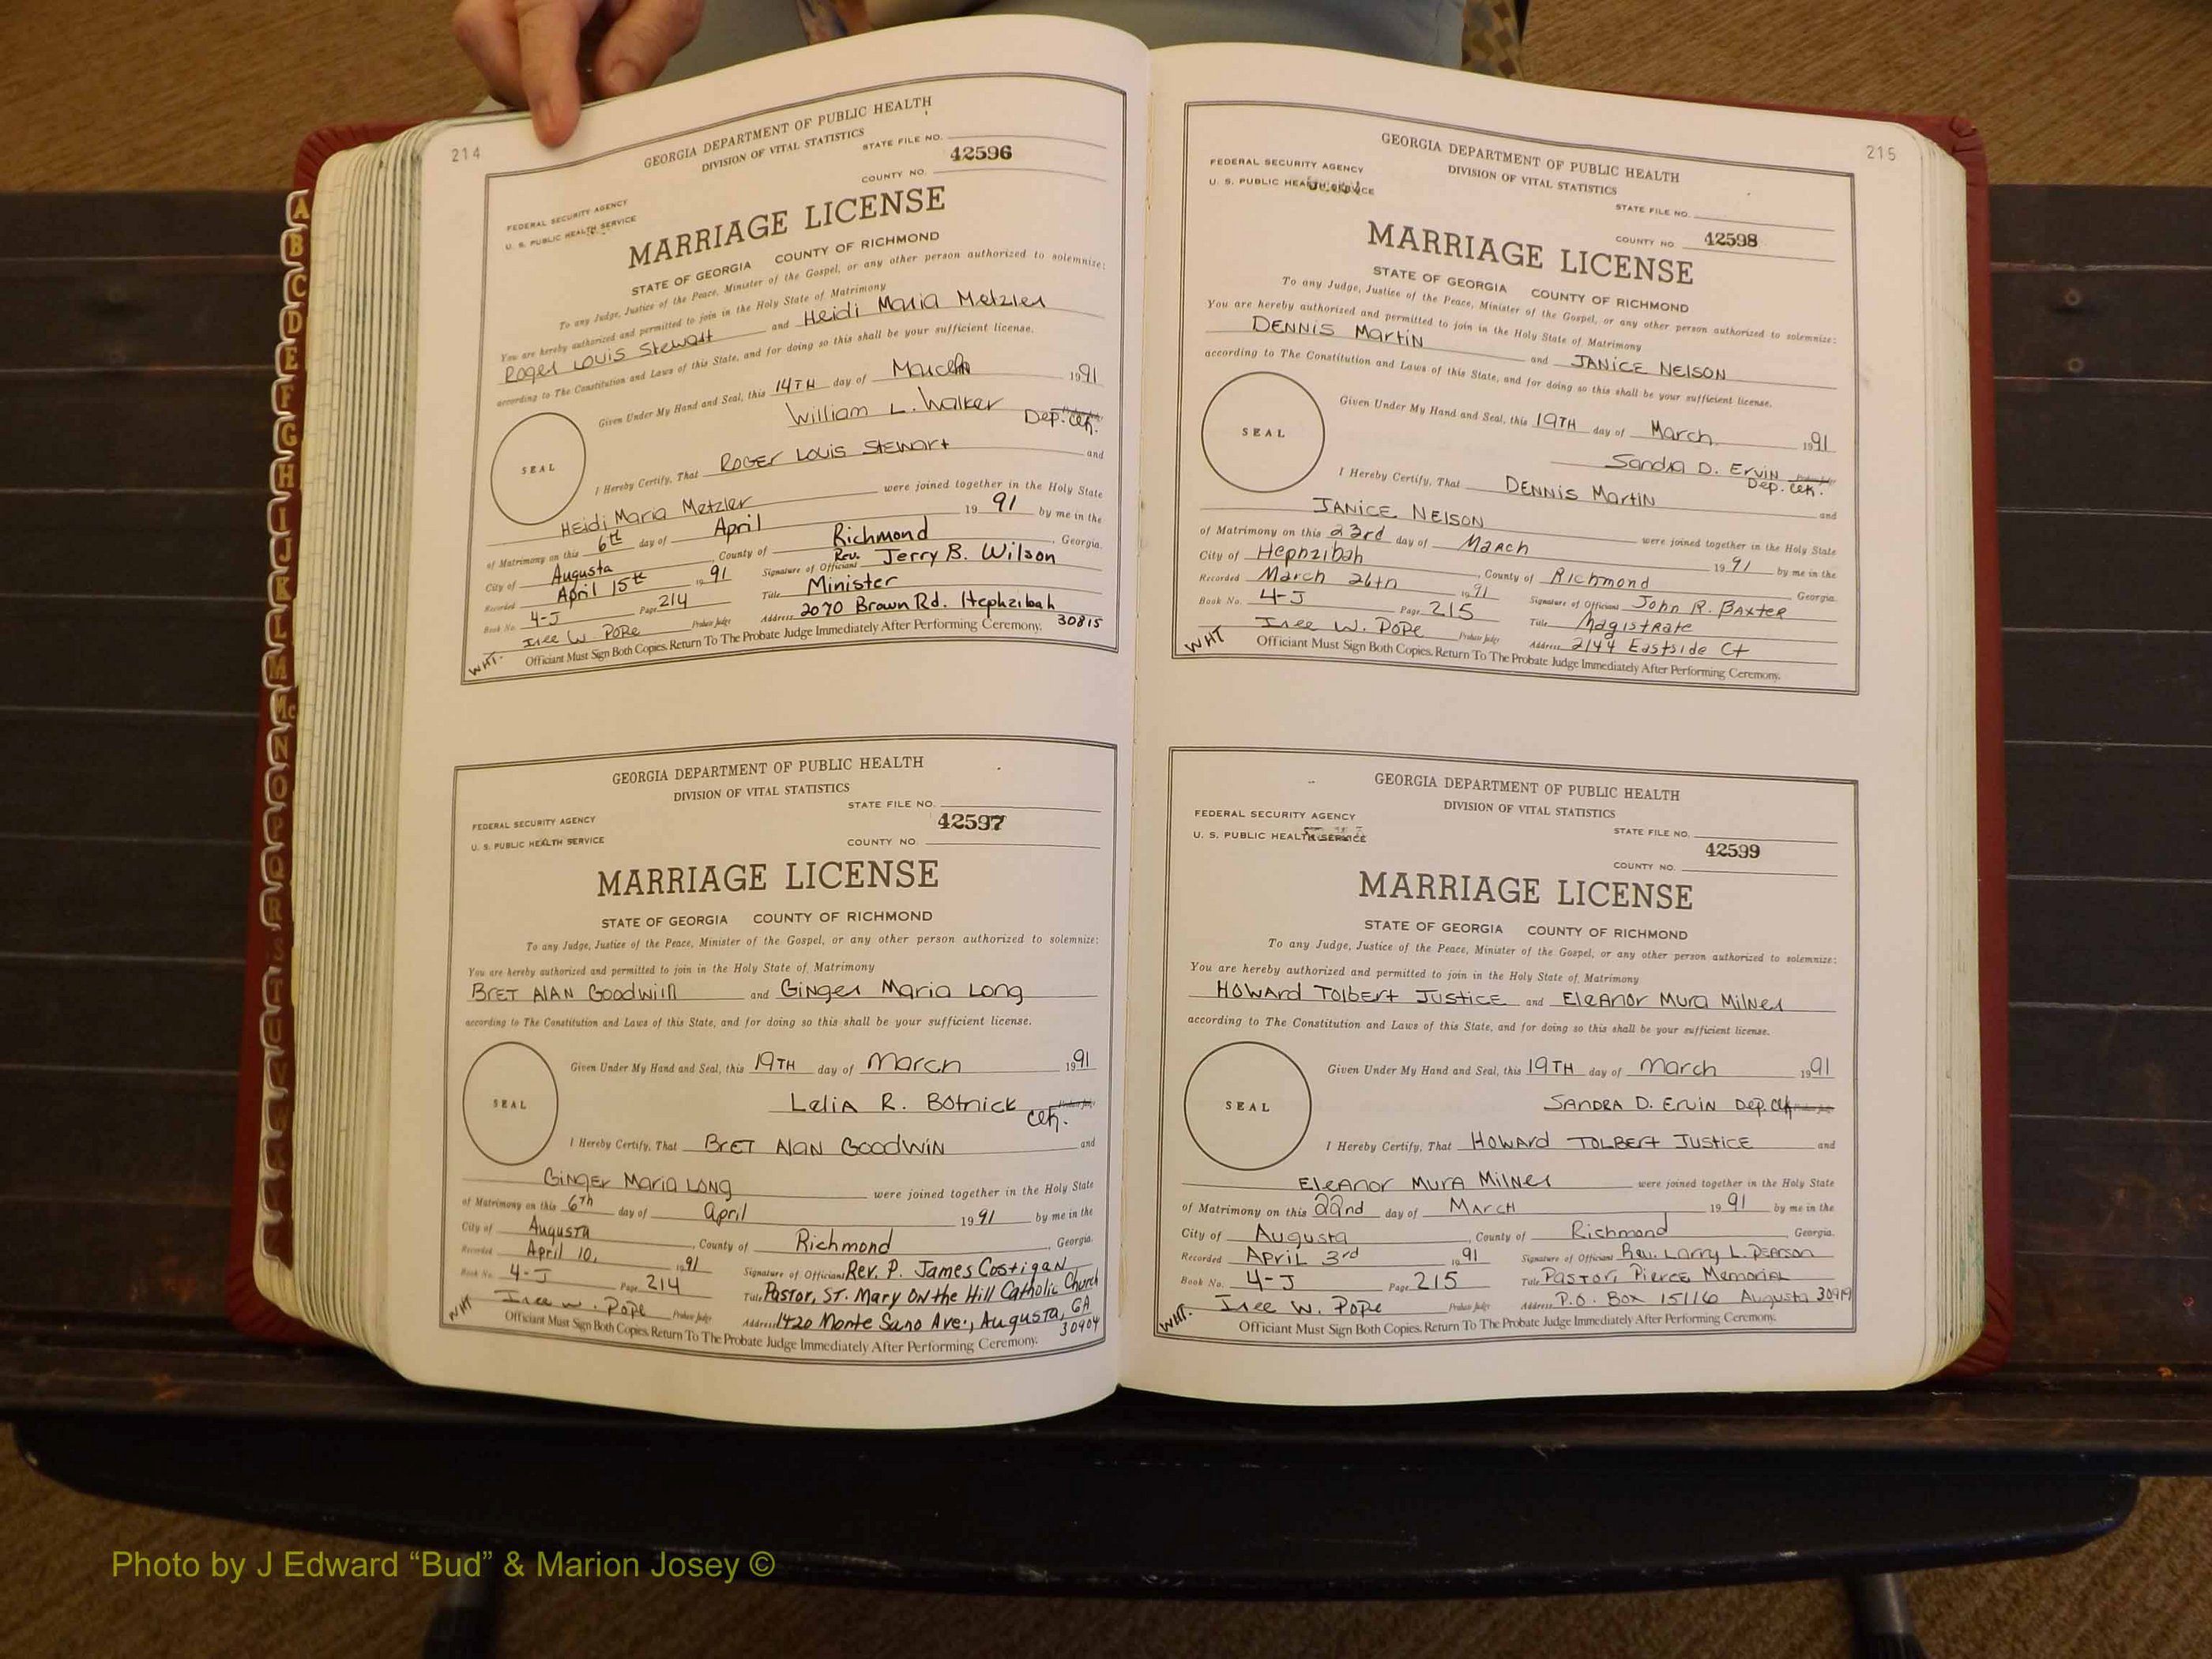 214
GEORGIA DEPARTMENT OF PUBLIC HEALTH
DIVISION OF VITAL STATISTICS
STATE FILE NO.
42596
COUNTY NO.
FEDERAL SECURITY AGENCY
U. S. PUBLIC HEALTH SERVICE
MARRIAGE LICENSE
STATE OF GEORGIA COUNTY OF RICHMOND
To any Judge, Justice of the Peace, Minister of the Gospel, or any other person authorized to solemnize:
You are hereby authorized and permitted to join in the Holy State of Matrimony
Roger Louis Stewart and Heidi Maria Metzler
according to The Constitution and Laws of this State, and for doing so this shall be your sufficient license.
Given Under My Hand and Seal, this 14TH day of March 1991
William L. Walker Dep. Clk.
SEAL
I Hereby Certify, That Roger Louis Stewart and
Heidi Maria Metzler were joined together in the Holy State
of Matrimony on this 6th day of April 19 91 by me in the
City of Augusta County of Richmond, Georgia.
Recorded April 15th 1991 Signature of Official Rev. Jerry B. Wilson
Book No. 4-J Page 214 Title Minister
Isee W. Pope Probate Judge Address 2070 Brown Rd. Hephzibah 30815
WHT. Officiant Must Sign Both Copies. Return To The Probate Judge Immediately After Performing Ceremony.
GEORGIA DEPARTMENT OF PUBLIC HEALTH
DIVISION OF VITAL STATISTICS
STATE FILE NO.
42597
FEDERAL SECURITY AGENCY
U. S. PUBLIC HEALTH SERVICE
COUNTY NO.
MARRIAGE LICENSE
STATE OF GEORGIA COUNTY OF RICHMOND
To any Judge, Justice of the Peace, Minister of the Gospel, or any other person authorized to solemnize:
You are hereby authorized and permitted to join in the Holy State of Matrimony
Bret Alan Goodwin and Ginger Maria Long
according to The Constitution and Laws of this State, and for doing so this shall be your sufficient license.
Given Under My Hand and Seal, this 19TH day of March 1991
Lelia R. Botnick Clk.
SEAL
I Hereby Certify, That Bret Alan Goodwin and
Ginger Maria Long were joined together in the Holy State
of Matrimony on this 6th day of April 1991 by me in the
City of Augusta, County of Richmond, Georgia.
Recorded April 10, 1991 Signature of Official Rev. P. James Costigan
Book No. 4-J Page 214 Title Pastor, St. Mary on the Hill Catholic Church
Isee W. Pope Probate Judge Address 1420 Monte Sano Ave., Augusta, GA 30904
WHT Officiant Must Sign Both Copies. Return To The Probate Judge Immediately After Performing Ceremony.
215
GEORGIA DEPARTMENT OF PUBLIC HEALTH
DIVISION OF VITAL STATISTICS
FEDERAL SECURITY AGENCY
U. S. PUBLIC HEALTH SERVICE
STATE FILE NO.
COUNTY NO. 42598
MARRIAGE LICENSE
STATE OF GEORGIA COUNTY OF RICHMOND
To any Judge, Justice of the Peace, Minister of the Gospel, or any other person authorized to solemnize:
You are hereby authorized and permitted to join in the Holy State of Matrimony
Dennis Martin and Janice Nelson
according to The Constitution and Laws of this State, and for doing so this shall be your sufficient license.
Given Under My Hand and Seal, this 19TH day of March 1991
Sandra D. Ervin Dep. Clk.
SEAL
I Hereby Certify, That Dennis Martin and
Janice Nelson were joined together in the Holy State
of Matrimony on this 23rd day of March 1991 by me in the
City of Hephzibah, County of Richmond Georgia.
Recorded March 26th 1991 Signature of Official John R. Baxter
Book No. 4-J Page 215 Title Magistrate
Isee W. Pope Probate Judge Address 2144 Eastside Ct
WHT Officiant Must Sign Both Copies. Return To The Probate Judge Immediately After Performing Ceremony.
GEORGIA DEPARTMENT OF PUBLIC HEALTH
DIVISION OF VITAL STATISTICS
FEDERAL SECURITY AGENCY
U. S. PUBLIC HEALTH SERVICE
STATE FILE NO.
42599
COUNTY NO.
MARRIAGE LICENSE
STATE OF GEORGIA COUNTY OF RICHMOND
To any Judge, Justice of the Peace, Minister of the Gospel, or any other person authorized to solemnize:
You are hereby authorized and permitted to join in the Holy State of Matrimony
Howard Tolbert Justice and Eleanor Mura Milner
according to The Constitution and Laws of this State, and for doing so this shall be your sufficient license.
Given Under My Hand and Seal, this 19TH day of March 1991
Sandra D. Ervin Dep. Clk
SEAL
I Hereby Certify, That Howard Tolbert Justice and
Eleanor Mura Milner were joined together in the Holy State
of Matrimony on this 22nd day of March 1991 by me in the
City of Augusta, County of Richmond, Georgia.
Recorded April 3rd 1991 Signature of Official Rev. Larry L. Pearson
Book No. 4-J Page 215 Title Pastor, Pierce Memorial
Isee W. Pope Probate Judge Address P.O. Box 15116 Augusta 30919
WHT. Officiant Must Sign Both Copies. Return To The Probate Judge Immediately After Performing Ceremony.
A
B
C
D
E
F
G
H
I
J
K
L
M
Mc
N
O
P
Q
R
S
T
U
V
W
Photo by J Edward “Bud” & Marion Josey ©